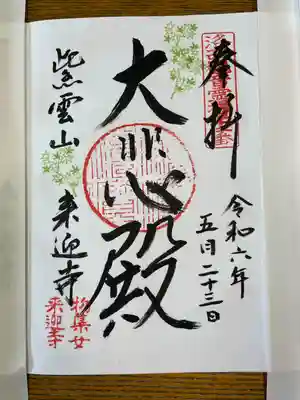 奉拝
令和六年
五月二十三日
大悲殿
紫雲山 来迎寺
物集女
来迎寺